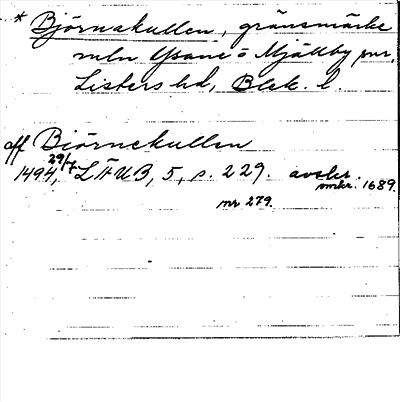 * Björnakullen, gränsmärke
mln Ysane o Mjällby snr,
Listers hd, Blek. l.
aff Biörnekullen
29/7
1494, LÄUB, 5, s. 229. avskr.
omkr. 1689.
nr 279.